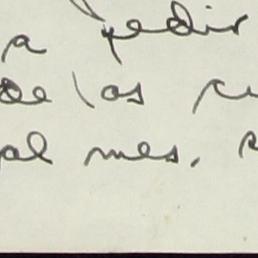 a pedir
de los
al mes.